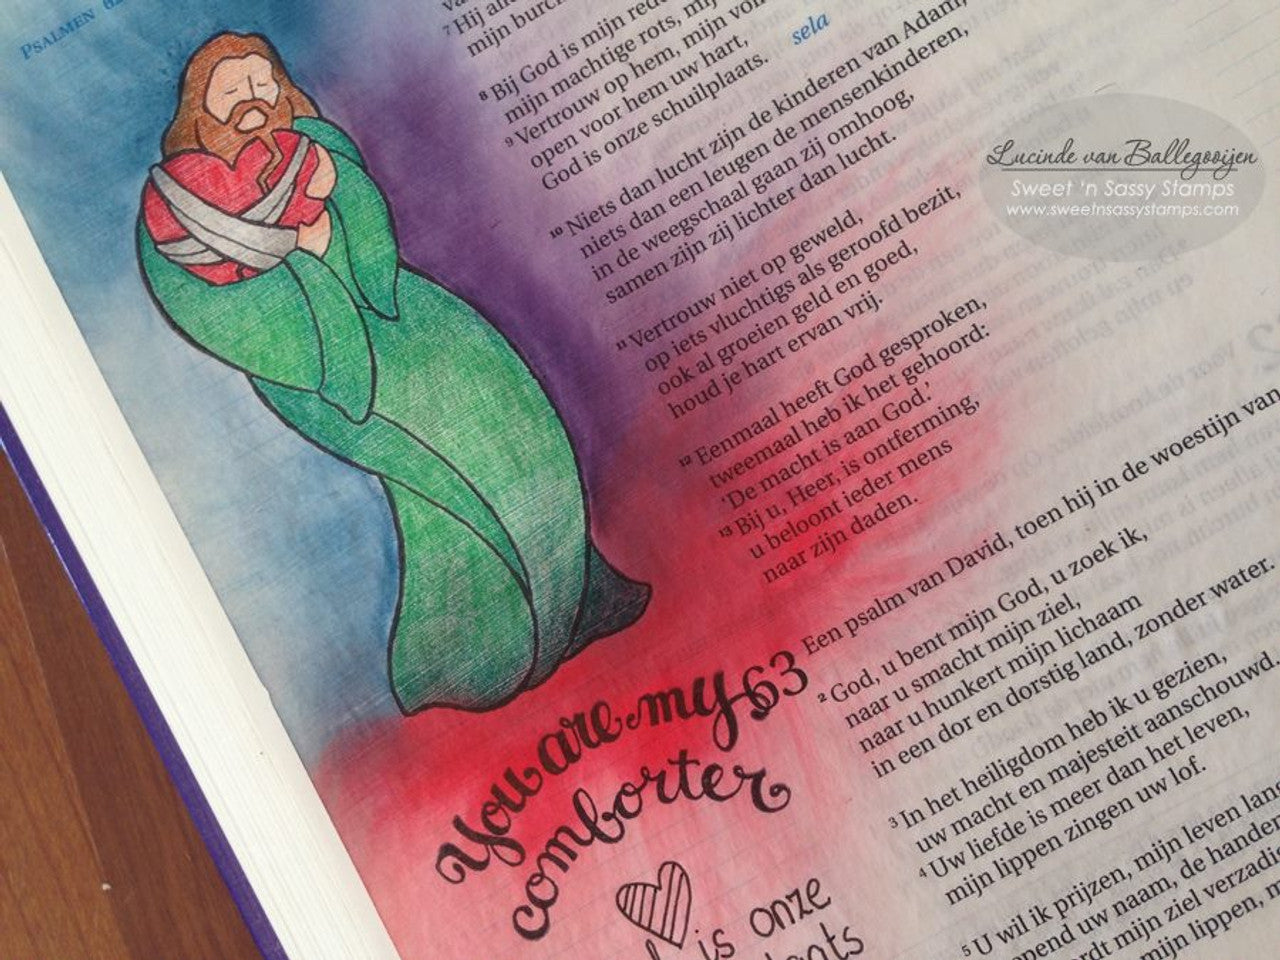 PSALMEN
7 Hij
mijn
8 Bij God is mijn
mijn machtige rots,
9 Vertrouw op hem, mijn
open voor hem uw hart,
God is onze schuilplaats. sela
10 Niets dan lucht zijn de kinderen van Adam,
niets dan een leugen de mensenkinderen,
in de weegschaal gaan zij omhoog,
samen zijn zij lichter dan lucht.
11 Vertrouw niet op geweld,
op iets vluchtigs als geroofd bezit,
ook al groeien geld en goed,
houd je hart ervan vrij.
12 Eenmaal heeft God gesproken,
tweemaal heb ik het gehoord:
‘De macht is aan God.’
13 Bij u, Heer, is ontferming,
u beloont ieder mens
naar zijn daden.
63 Een psalm van David, toen hij in de woestijn van
2 God, u bent mijn God, u zoek ik,
naar u smacht mijn ziel,
naar u hunkert mijn lichaam
in een dor en dorstig land, zonder water.
3 In het heiligdom heb ik u gezien,
uw macht en majesteit aanschouwd.
4 Uw liefde is meer dan het leven,
mijn lippen zingen uw lof.
5 U wil ik prijzen, mijn leven
uw naam, de handen
mijn ziel
mijn lippen,
You are my
comforter
is onze
Lucinde van Ballegooijen
Sweet 'n Sassy Stamps
www.sweetnsassystamps.com